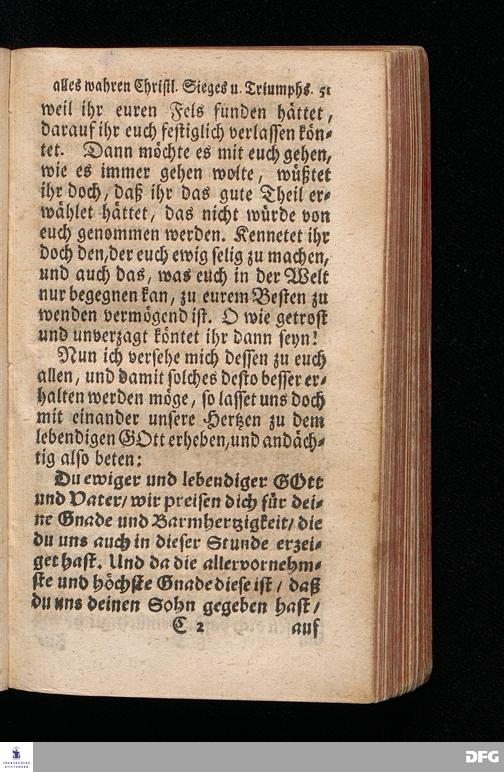 alles wahren Christl. Sieges u. Triumphs. 51
weil ihr euren Fels funden hättet,
darauf ihr euch festiglich verlassen kön-
tet. Dann möchte es mit euch gehen,
wie es immer gehen wolte, wüßtet
ihr doch, daß ihr das gute Theil er-
wählet hättet, das nicht würde von
euch genommen werden. Kennetet ihr
doch den, der euch ewig selig zu machen,
und auch das, was euch in der Welt
nur begegnen kan, zu eurem Besten zu
wenden vermögend ist. O wie getrost
und unverzagt köntet ihr dann seyn!
Nun ich versehe mich dessen zu euch
allen, und damit solches desto besser er-
halten werden möge, so lasset uns doch
mit einander unsere Hertzen zu dem
lebendigen GOtt erheben, und andäch-
tig also beten:
Du ewiger und lebendiger GOtt
und Vater/ wir preisen dich für dei-
ne Gnade und Barmhertzigkeit/ die
du uns auch in dieser Stunde erzei-
get hast. Und da die allervornehm-
ste und höchste Gnade diese ist/ daß
du uns deinen Sohn gegeben hast/
C 2 auf
FRANCKESCHE
STIFTUNGEN
DFG